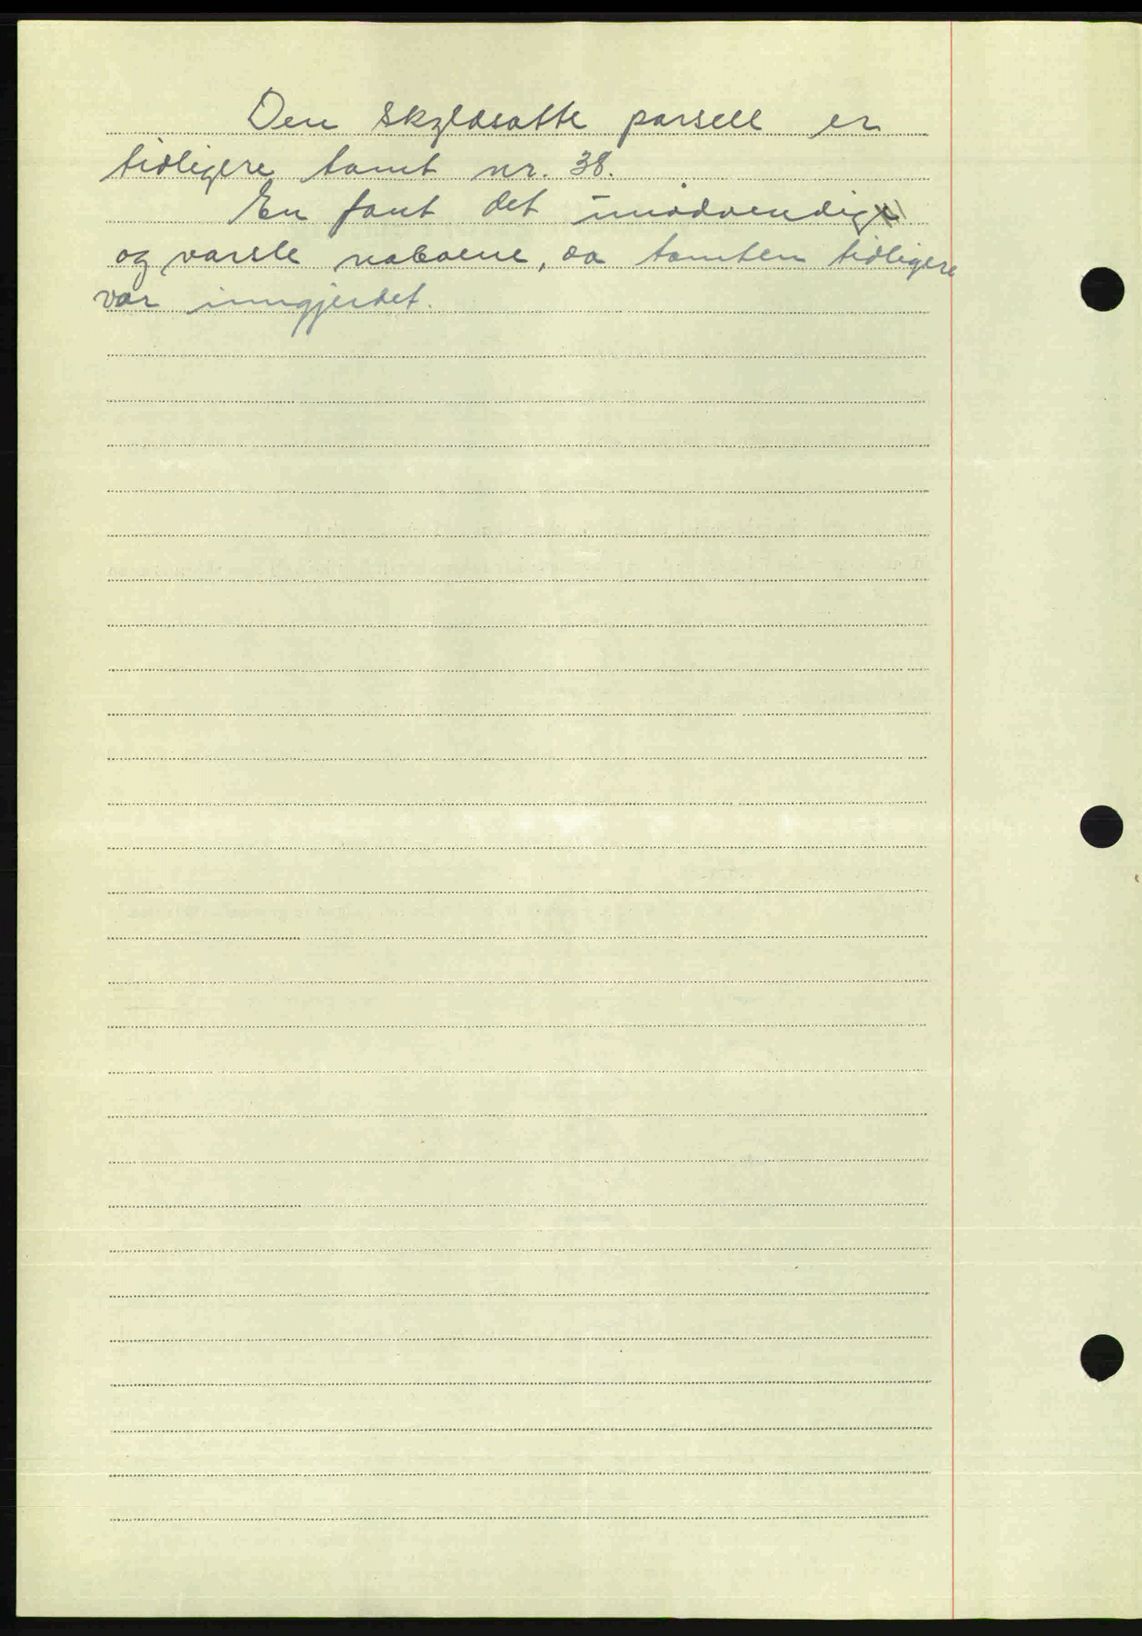 Den skyldsatte parsell er
tidligere tomt nr. 38.
En fant det unødvendig
og varsle naboene, da tomten tidligere
var inngjerdet.